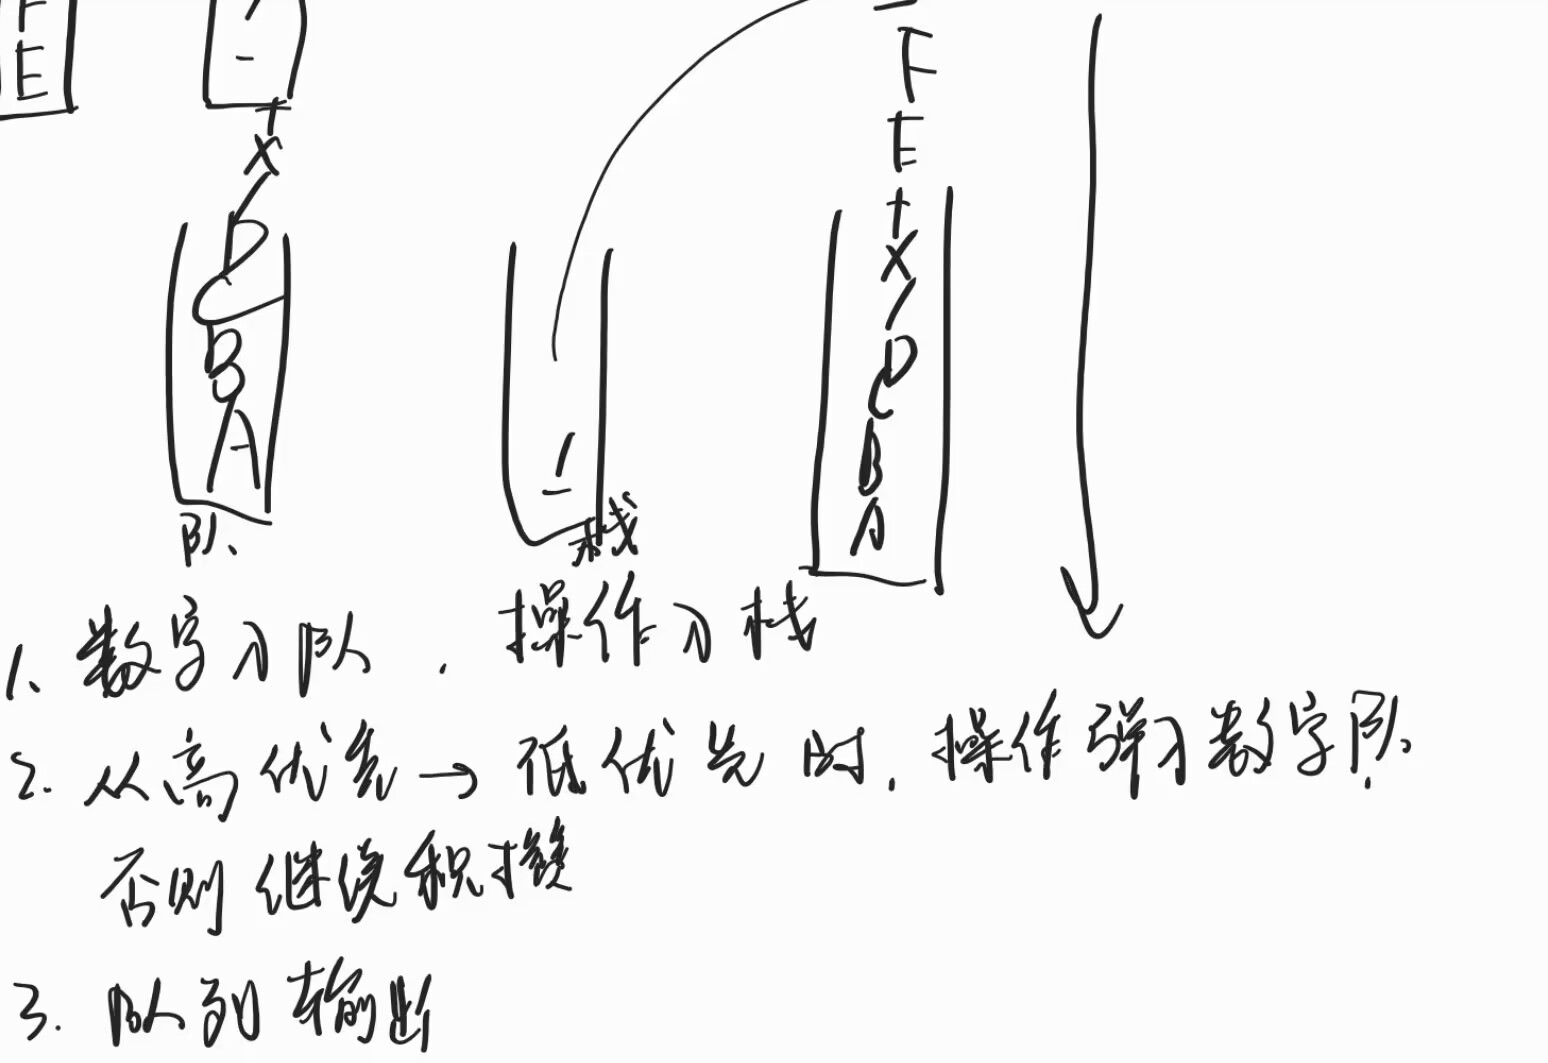 F
E
/
-
+
X
/
D
C
B
A
队
/
-
栈
F
E
+
X
/
D
C
B
A
1、数字入队,操作入栈
2. 从高优先→低优先时,操作弹入数字队.
否则继续积攒
3. 队列输出